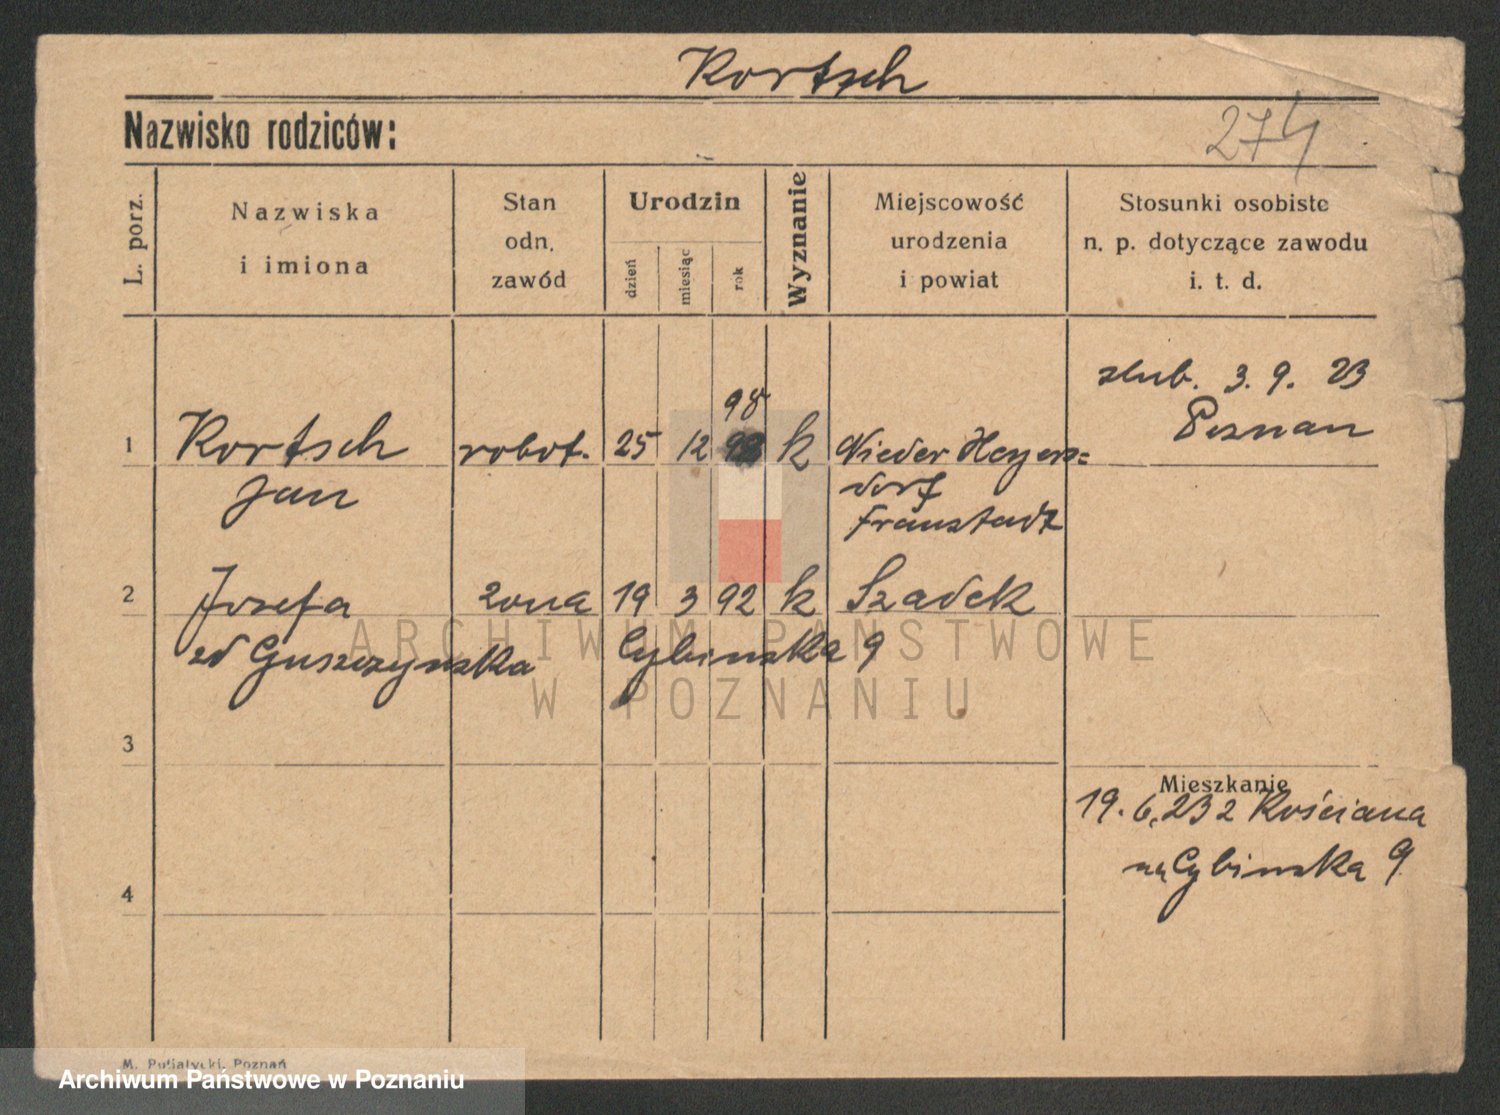 Kortsch
Nazwisko rodziców:
274
L. porz.
Nazwiska
i imiona
Stan
odn.
zawód
Urodzin
dzień
miesiąc
rok
Wyznanie
Miejscowość
urodzenia
i powiat
Stosunki osobiste
n. p. dotyczące zawodu
i. t. d.
ślub. 3. 9. 23
Poznan
98
1 Kortsch robot. 25 12 93 k Nieder Heyers=
Jan dorf
Fraustadt
2 Josefa zona 19 3 92 k Szadek
zd Guszczynska Cybinska 9
ARCHIWUM PAŃSTWOWE
W POZNANIU
3
Mieszkanie
19. 6. 23 z Kościana
na Cybinska 9
4
M. Poznań
Archiwum Państwowe w Poznaniu